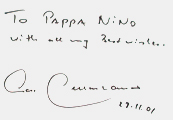 To PAPPA NINO
with all my best wishes.
29.11.01